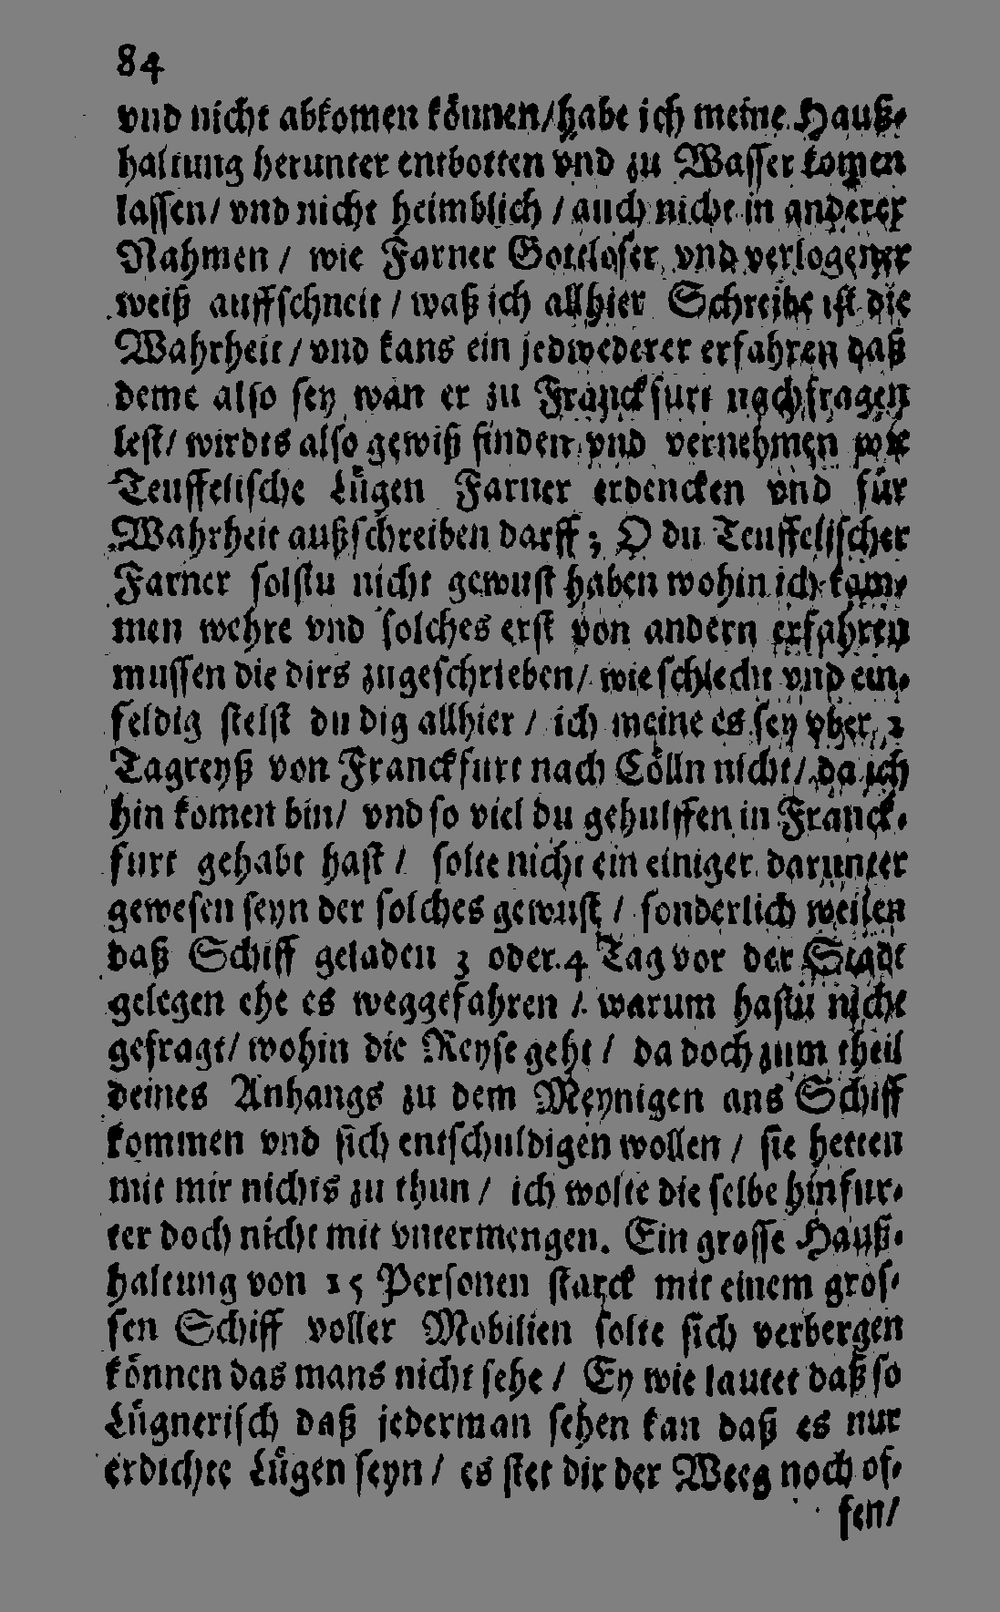 84
vnd nicht abkomen können/ habe ich meine Hauß-
haltung herunter entbotten vnd zu Wasser komen
lassen/ vnd nicht heimblich / auch nicht in anderer
Nahmen / wie Farner Gottloser vnd verlogener
weiß auffschneit / waß ich allhier Schreibe ist die
Wahrheit / vnd kans ein jedwederer erfahren daß
deme also sey wan er zu Franckfurt nachfragen
lest/ wirdts also gewiß finden vnd vernehmen wie
Teuffelische Lügen Farner erdencken vnd für
Wahrheit außschreiben darff ; O du Teuffelischer
Farner solstu nicht gewust haben wohin ich kom-
men wehre vnd solches erst von andern erfahren
mussen die dirs zugeschrieben/ wie schlecht vnd ein-
feldig stelst du dig allhier / ich meine es sey vber 2
Tagreyß von Franckfurt nach Cölln nicht / da ich
hin komen bin/ vnd so viel du gehulffen in Franck-
furt gehabt hast / solte nicht ein einiger darunter
gewesen seyn der solches gewust / sonderlich weilen
daß Schiff geladen 3 oder 4 Tag vor der Stadt
gelegen ehe es weggefahren / warum hastu nicht
gefragt/ wohin die Reyse geht / da doch zum theil
deines Anhangs zu dem Meynigen ans Schiff
kommen vnd sich entschuldigen wollen / sie hetten
mit mir nichts zu thun / ich wolte die selbe hinfur-
ter doch nicht mit vntermengen. Ein grosse Hauß-
haltung von 15 Personen starck mit einem gros-
sen Schiff voller Mobilien solte sich verbergen
können das mans nicht sehe / Ey wie lautet daß so
Lügnerisch daß jederman sehen kan daß es nur
erdichte Lügen seyn / es stet dir der Weeg noch of-
fen/